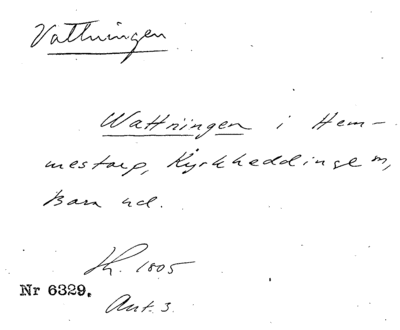 Vattningen
Wattningen i Hem-
mestorp, Kyrkheddinge sn,
Bara hd.
Lh. 1805
Nr 6329.
Ant. 3.